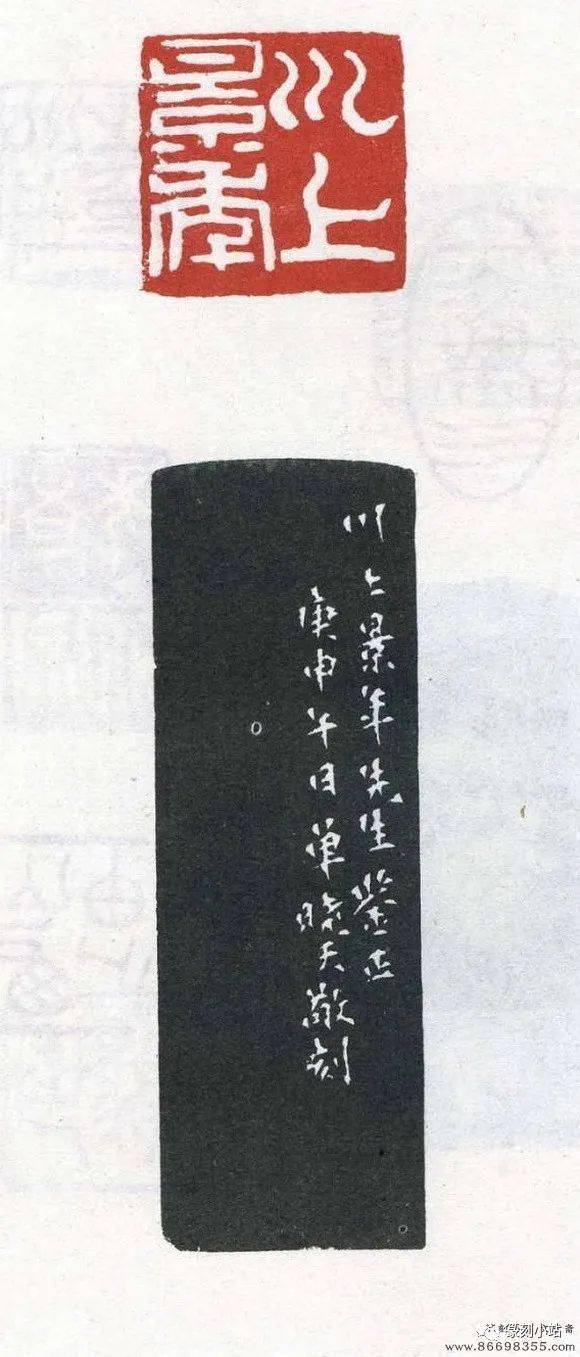 川上
景年
川上景年先生鉴正
庚申午日单晓天敬刻
篆刻小站
www.86698355.com